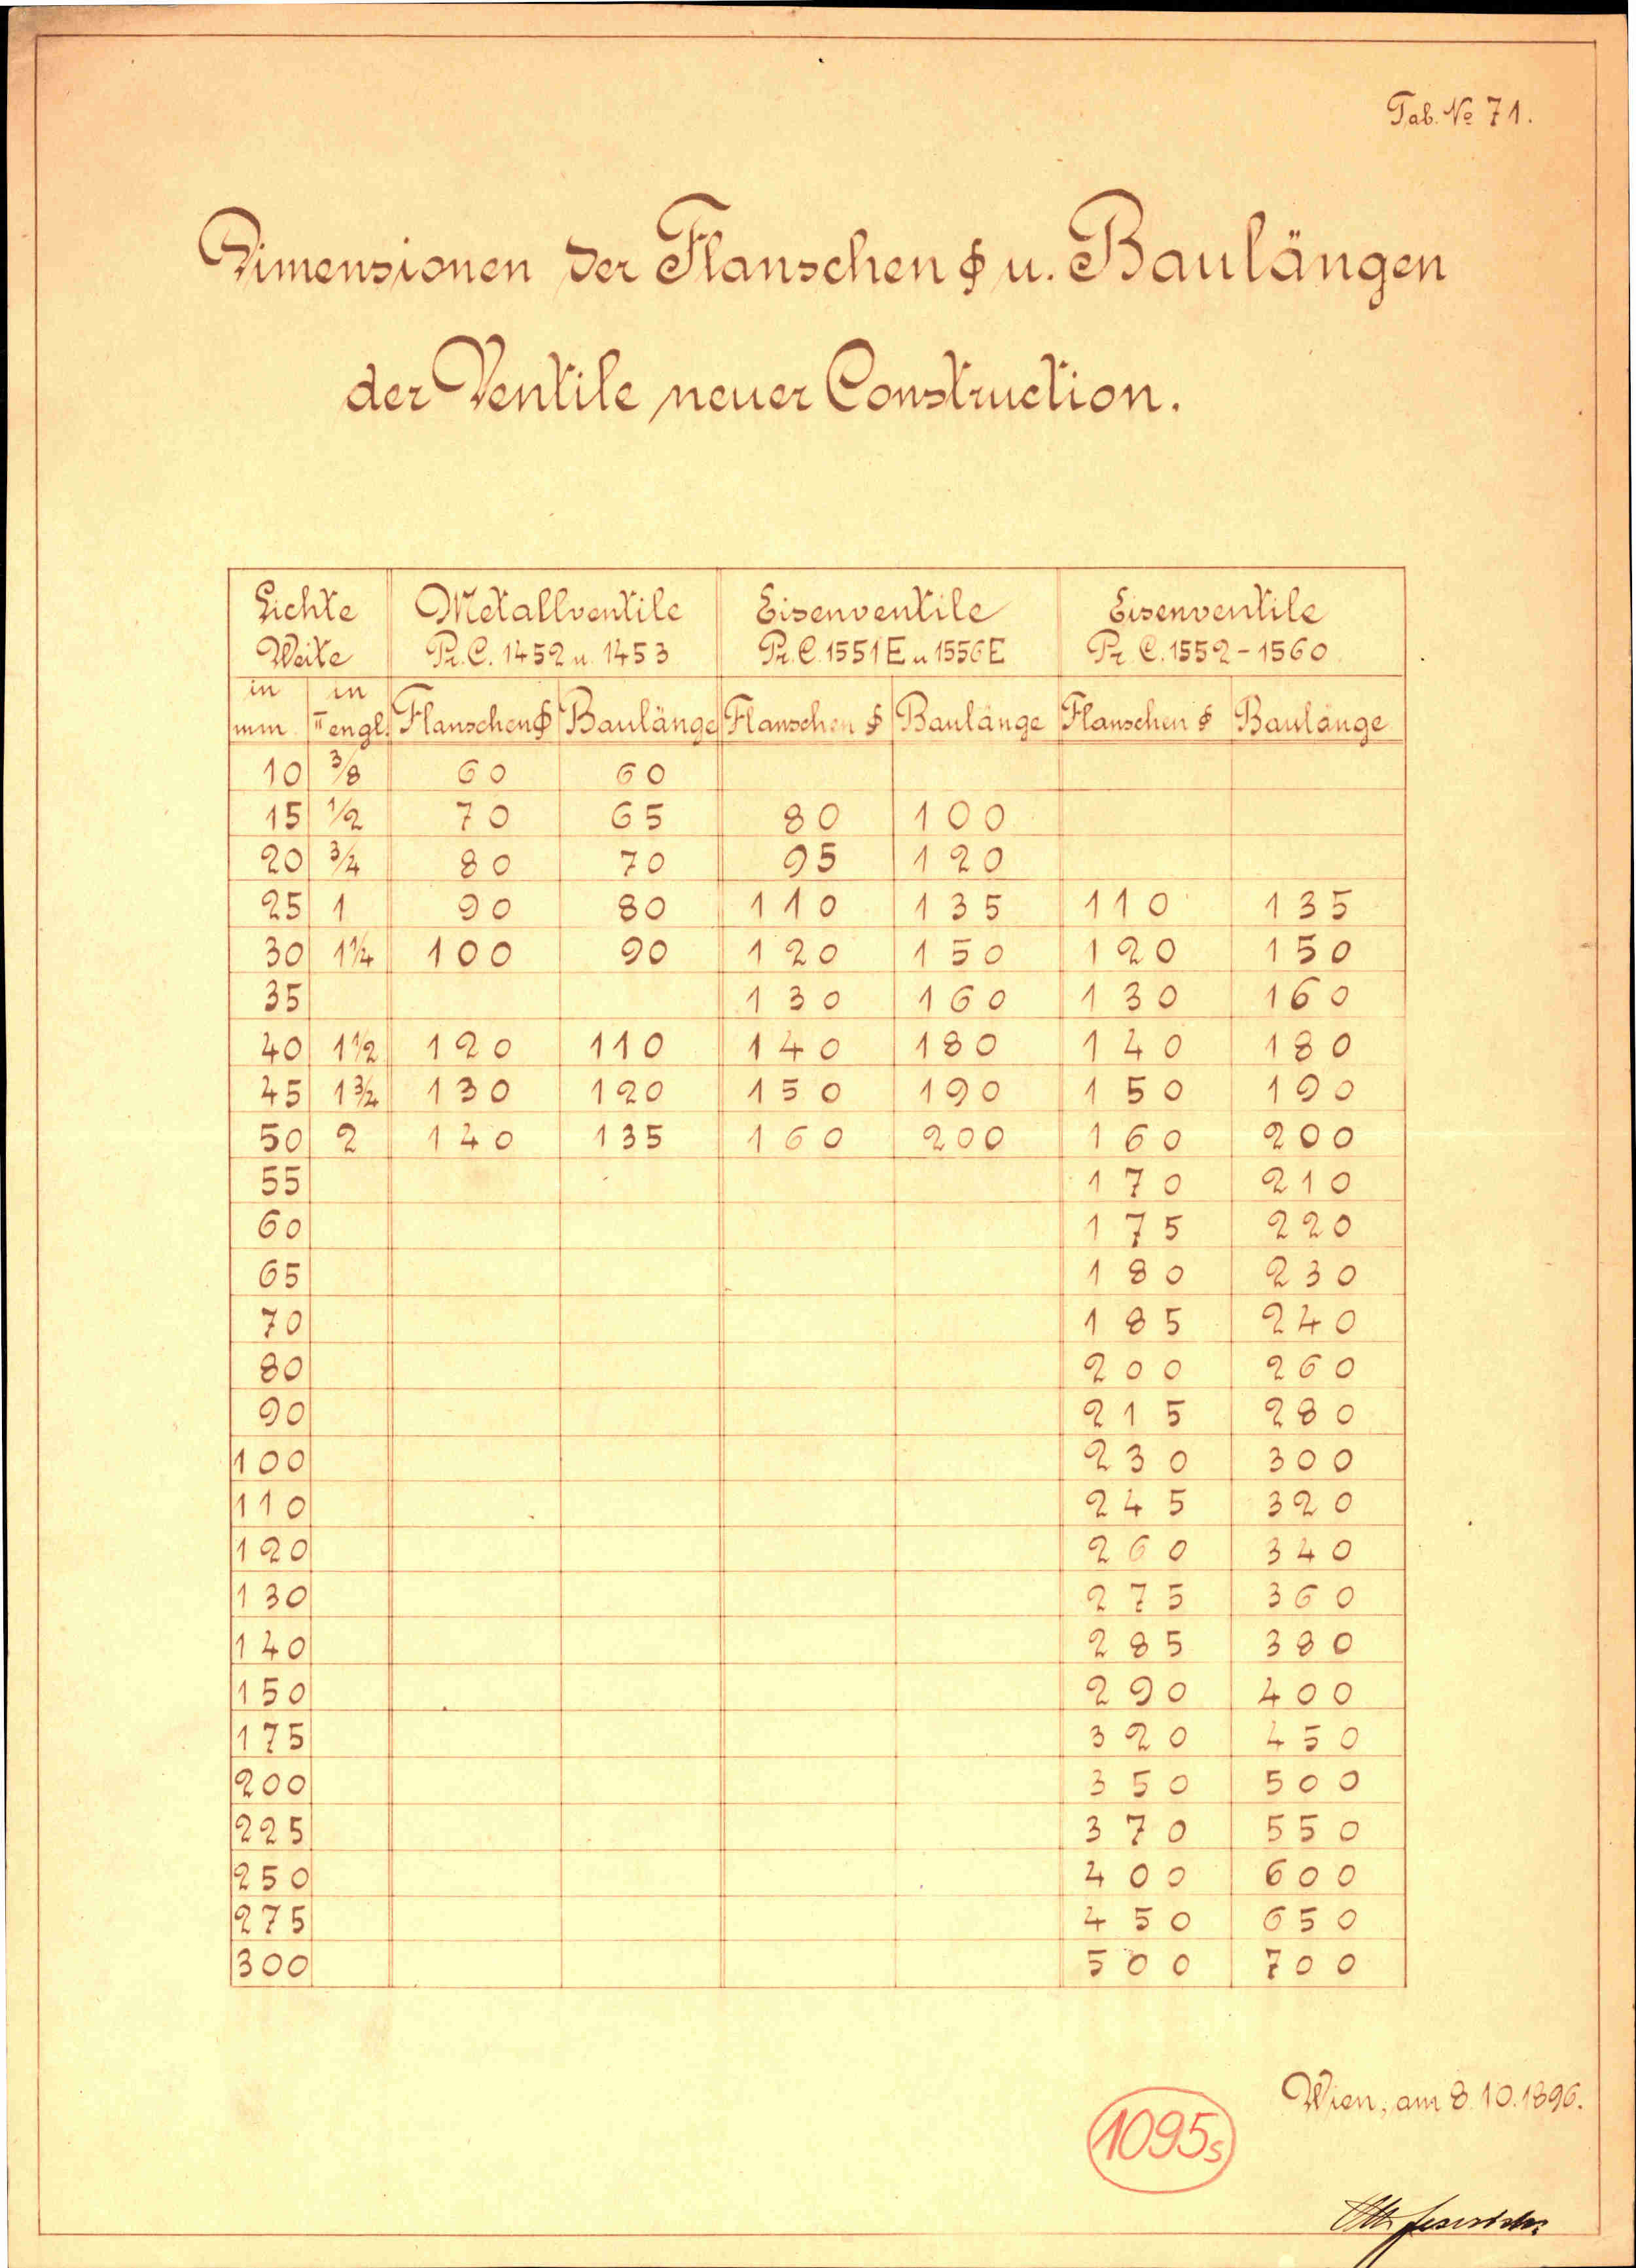 Tab. № 71.
Dimensionen der Flanschen ϕ u. Baulängen
der Ventile neuer Construction.
Lichte Metallventile Eisenventile Eisenventile
Weite Pr. C. 1452 u. 1453 Pr. C. 1551E u 1556E Pr. C. 1552-1560
in in
mm " engl. Flanschen ϕ Baulänge Flanschen ϕ Baulänge Flanschen ϕ Baulänge
10 3/8 60 60
15 1/2 70 65 80 100
20 3/4 80 70 95 120
25 1 90 80 110 135 110 135
30 1 1/4 100 90 120 150 120 150
35 130 160 130 160
40 1 1/2 120 110 140 180 140 180
45 1 3/4 130 120 150 190 150 190
50 2 140 135 160 200 160 200
55 170 210
60 175 220
65 180 230
70 185 240
80 200 260
90 215 280
100 230 300
110 245 320
120 260 340
130 275 360
140 285 380
150 290 400
175 320 450
200 350 500
225 370 550
250 400 600
275 450 650
300 500 700
Wien, am 8.10.1896.
1095s